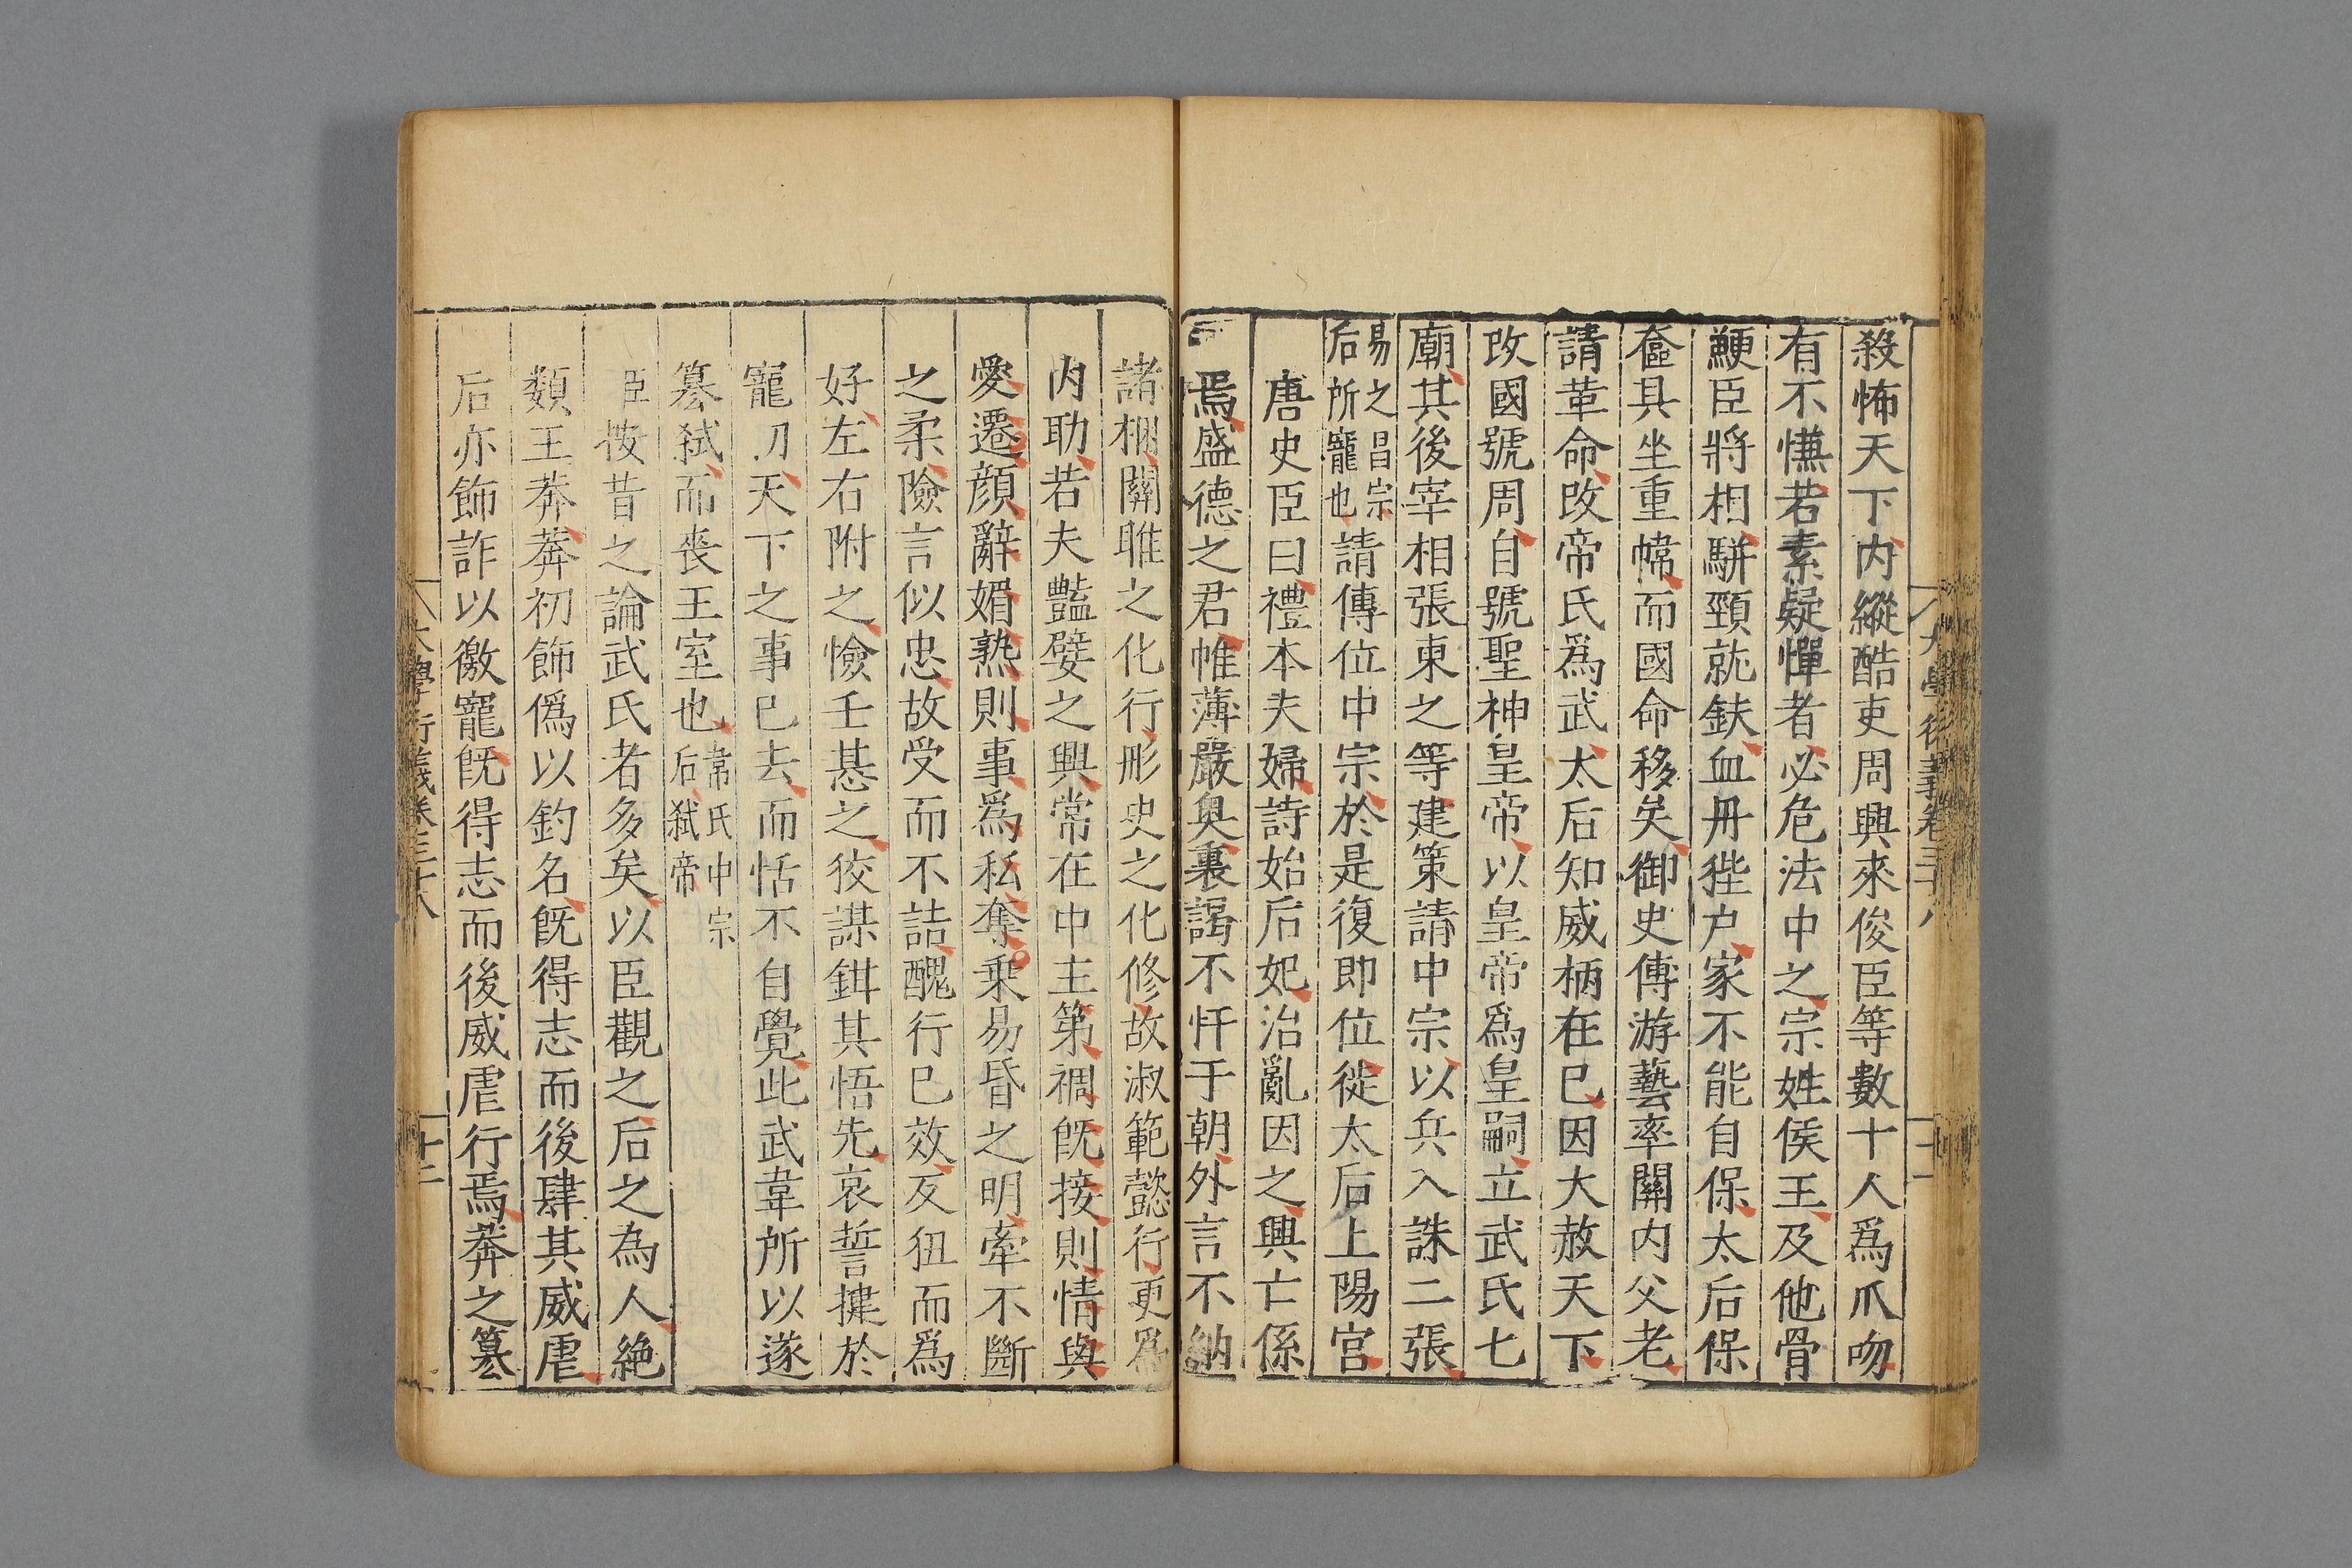 殺怖天下内縱酷吏周興來俊臣等數十人爲爪吻
有不慊若素疑憚者必危法中之宗姓侯王及他骨
鯁臣將相駢頸就鈇血丹狴户家不能自保太后保
奩具坐重幃而國命移矣御史傅游藝率關内父老
請革命改帝氏爲武太后知威柄在已因大赦天下
改國號周自號聖神皇帝以皇帝爲皇嗣立武氏七
廟其後宰相張東之等建策請中宗以兵入誅二張
易之昌宗
后所寵也
請傳位中宗於是復即位徙太后上陽宮
唐史臣曰禮本夫婦詩始后妃治亂因之興亡係
焉盛德之君帷薄嚴奥裏謁不忓于朝外言不納
諸梱關雎之化行彤史之化修故淑範懿行更爲
内助若夫豔嬖之興常在中主第裯旣接則情與
愛遷顔辭媚熟則事爲私奪乘易昏之明牽不斷
之柔險言似忠故受而不詰醜行已效反狃而爲
好左右附之憸壬惎之狡謀鉗其悟先哀誓揵於
寵刀天下之事已去而恬不自覺此武韋所以遂
簒弑而喪王室也
韋氏中宗
后弑帝
臣按昔之論武氏者多矣以臣觀之后之為人絶
類王莽莽初飾僞以釣名旣得志而後肆其威虐
后亦飾詐以徼寵旣得志而後威虐行焉莽之簒
大學衍義卷三十八
十二